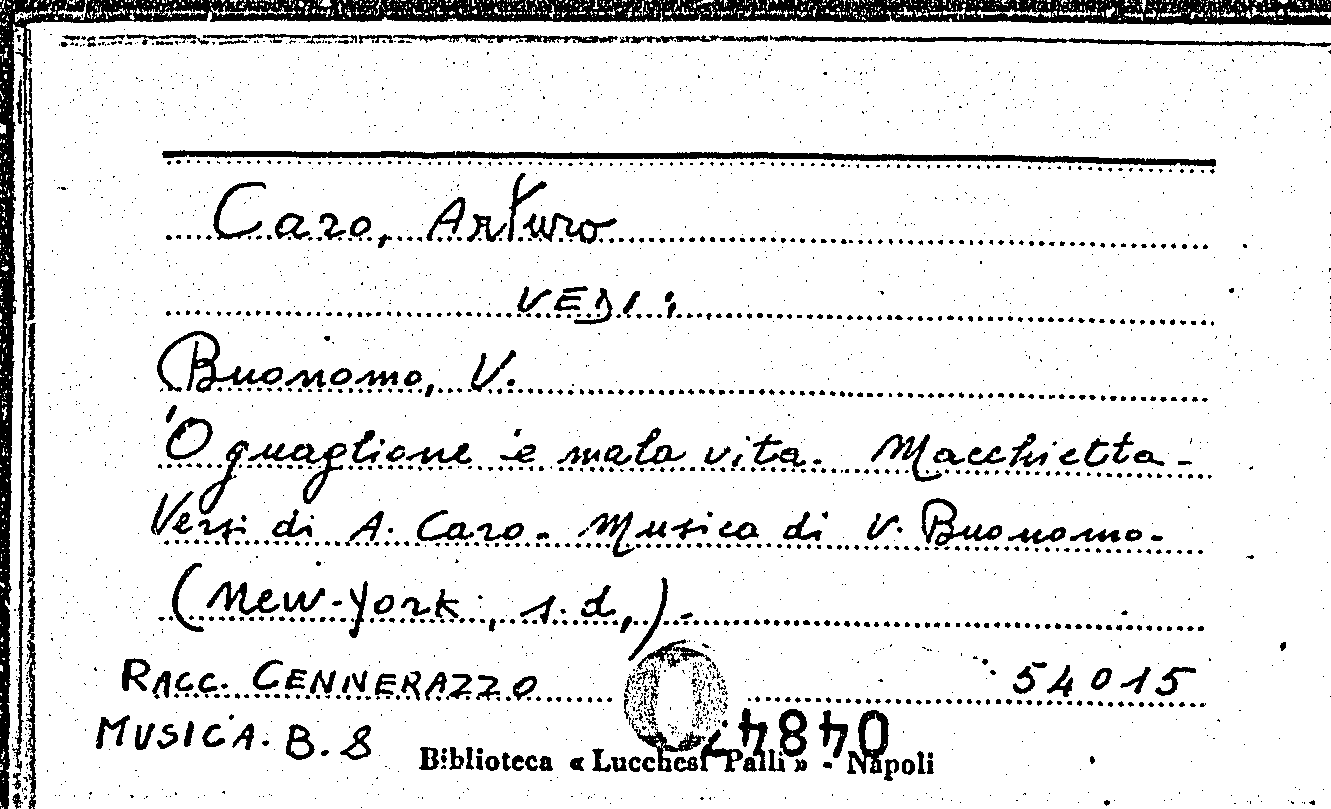 Caro, Arturo
VEDI:
Buonomo, V.
'O guaglione 'e mala vita. Macchietta-
Versi di A. Caro. Musica di V. Buonomo-
(New-York, s.d.).
RACC. CENNERAZZO 54015
MUSICA. B. 8
Biblioteca « Lucchesi Palli » - Napoli